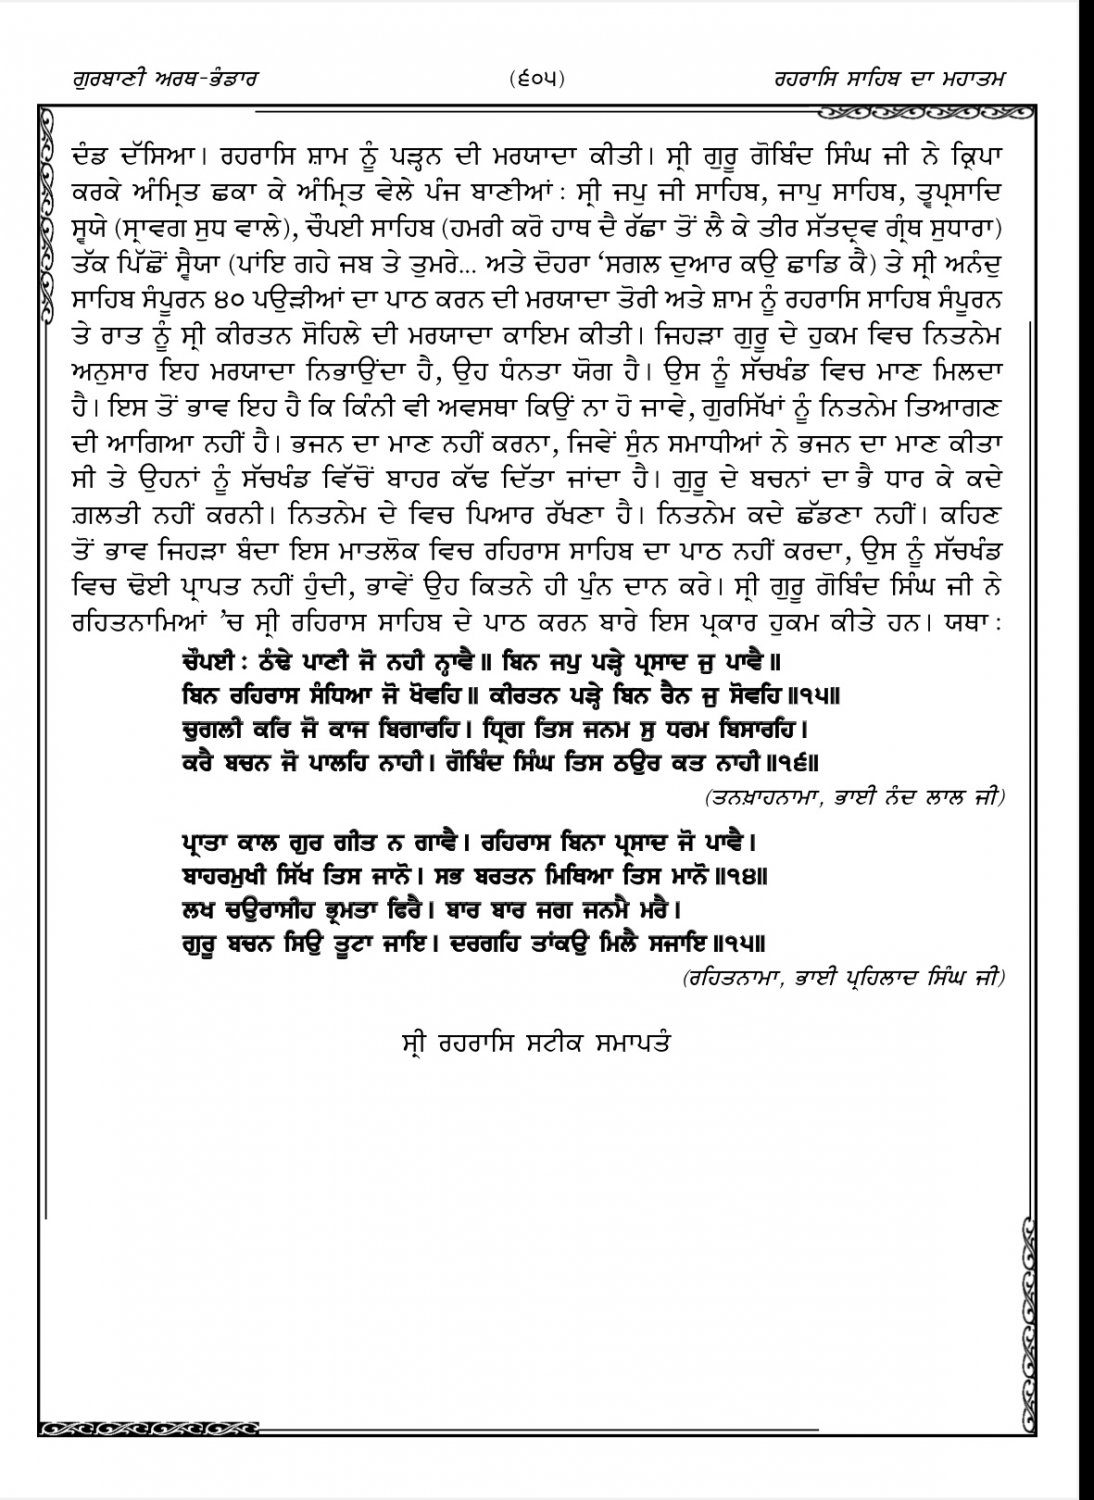 ਗੁਰਬਾਣੀ ਅਰਥ-ਭੰਡਾਰ (੬੦੫) ਰਹਰਾਸਿ ਸਾਹਿਬ ਦਾ ਮਹਾਤਮ
ਦੰਡ ਦੱਸਿਆ। ਰਹਰਾਸਿ ਸ਼ਾਮ ਨੂੰ ਪੜ੍ਹਨ ਦੀ ਮਰਯਾਦਾ ਕੀਤੀ। ਸ੍ਰੀ ਗੁਰੂ ਗੋਬਿੰਦ ਸਿੰਘ ਜੀ ਨੇ ਕ੍ਰਿਪਾ
ਕਰਕੇ ਅੰਮ੍ਰਿਤ ਛਕਾ ਕੇ ਅੰਮ੍ਰਿਤ ਵੇਲੇ ਪੰਜ ਬਾਣੀਆਂ : ਸ੍ਰੀ ਜਪੁ ਜੀ ਸਾਹਿਬ, ਜਾਪੁ ਸਾਹਿਬ, ਤ੍ਵਪ੍ਰਸਾਦਿ
ਸ੍ਵਯੇ (ਸ੍ਰਾਵਗ ਸੁਧ ਵਾਲੇ), ਚੌਪਈ ਸਾਹਿਬ (ਹਮਰੀ ਕਰੋ ਹਾਥ ਦੈ ਰੱਛਾ ਤੋਂ ਲੈ ਕੇ ਤੀਰ ਸੱਤਦ੍ਰਵ ਗ੍ਰੰਥ ਸੁਧਾਰਾ)
ਤੱਕ ਪਿੱਛੋਂ ਸ੍ਵੈਯਾ (ਪਾਂਇ ਗਹੇ ਜਬ ਤੇ ਤੁਮਰੇ... ਅਤੇ ਦੋਹਰਾ ‘ਸਗਲ ਦੁਆਰ ਕਉ ਛਾਡਿ ਕੈ) ਤੇ ਸ੍ਰੀ ਅਨੰਦੁ
ਸਾਹਿਬ ਸੰਪੂਰਨ ੪੦ ਪਉੜੀਆਂ ਦਾ ਪਾਠ ਕਰਨ ਦੀ ਮਰਯਾਦਾ ਤੋਰੀ ਅਤੇ ਸ਼ਾਮ ਨੂੰ ਰਹਰਾਸਿ ਸਾਹਿਬ ਸੰਪੂਰਨ
ਤੇ ਰਾਤ ਨੂੰ ਸ੍ਰੀ ਕੀਰਤਨ ਸੋਹਿਲੇ ਦੀ ਮਰਯਾਦਾ ਕਾਇਮ ਕੀਤੀ। ਜਿਹੜਾ ਗੁਰੂ ਦੇ ਹੁਕਮ ਵਿਚ ਨਿਤਨੇਮ
ਅਨੁਸਾਰ ਇਹ ਮਰਯਾਦਾ ਨਿਭਾਉਂਦਾ ਹੈ, ਉਹ ਧੰਨਤਾ ਯੋਗ ਹੈ। ਉਸ ਨੂੰ ਸੱਚਖੰਡ ਵਿਚ ਮਾਣ ਮਿਲਦਾ
ਹੈ। ਇਸ ਤੋਂ ਭਾਵ ਇਹ ਹੈ ਕਿ ਕਿੰਨੀ ਵੀ ਅਵਸਥਾ ਕਿਉਂ ਨਾ ਹੋ ਜਾਵੇ, ਗੁਰਸਿੱਖਾਂ ਨੂੰ ਨਿਤਨੇਮ ਤਿਆਗਣ
ਦੀ ਆਗਿਆ ਨਹੀਂ ਹੈ। ਭਜਨ ਦਾ ਮਾਣ ਨਹੀਂ ਕਰਨਾ, ਜਿਵੇਂ ਸੁੰਨ ਸਮਾਧੀਆਂ ਨੇ ਭਜਨ ਦਾ ਮਾਣ ਕੀਤਾ
ਸੀ ਤੇ ਉਹਨਾਂ ਨੂੰ ਸੱਚਖੰਡ ਵਿੱਚੋਂ ਬਾਹਰ ਕੱਢ ਦਿੱਤਾ ਜਾਂਦਾ ਹੈ। ਗੁਰੂ ਦੇ ਬਚਨਾਂ ਦਾ ਭੈ ਧਾਰ ਕੇ ਕਦੇ
ਗ਼ਲਤੀ ਨਹੀਂ ਕਰਨੀ। ਨਿਤਨੇਮ ਦੇ ਵਿਚ ਪਿਆਰ ਰੱਖਣਾ ਹੈ। ਨਿਤਨੇਮ ਕਦੇ ਛੱਡਣਾ ਨਹੀਂ। ਕਹਿਣ
ਤੋਂ ਭਾਵ ਜਿਹੜਾ ਬੰਦਾ ਇਸ ਮਾਤਲੋਕ ਵਿਚ ਰਹਿਰਾਸ ਸਾਹਿਬ ਦਾ ਪਾਠ ਨਹੀਂ ਕਰਦਾ, ਉਸ ਨੂੰ ਸੱਚਖੰਡ
ਵਿਚ ਢੋਈ ਪ੍ਰਾਪਤ ਨਹੀਂ ਹੁੰਦੀ, ਭਾਵੇਂ ਉਹ ਕਿਤਨੇ ਹੀ ਪੁੰਨ ਦਾਨ ਕਰੇ। ਸ੍ਰੀ ਗੁਰੂ ਗੋਬਿੰਦ ਸਿੰਘ ਜੀ ਨੇ
ਰਹਿਤਨਾਮਿਆਂ ’ਚ ਸ੍ਰੀ ਰਹਿਰਾਸ ਸਾਹਿਬ ਦੇ ਪਾਠ ਕਰਨ ਬਾਰੇ ਇਸ ਪ੍ਰਕਾਰ ਹੁਕਮ ਕੀਤੇ ਹਨ। ਯਥਾ :
ਚੌਪਈ : ਠੰਢੇ ਪਾਣੀ ਜੋ ਨਹੀ ਨ੍ਹਾਵੈ॥ ਬਿਨ ਜਪੁ ਪੜ੍ਹੇ ਪ੍ਰਸਾਦ ਜੁ ਪਾਵੈ॥
ਬਿਨ ਰਹਿਰਾਸ ਸੰਧਿਆ ਜੋ ਖੋਵਹਿ॥ ਕੀਰਤਨ ਪੜ੍ਹੇ ਬਿਨ ਰੈਨ ਜੁ ਸੋਵਹਿ॥੧੫॥
ਚੁਗਲੀ ਕਰਿ ਜੋ ਕਾਜ ਬਿਗਾਰਹਿ। ਧ੍ਰਿਗ ਤਿਸ ਜਨਮ ਸੁ ਧਰਮ ਬਿਸਾਰਹਿ।
ਕਰੈ ਬਚਨ ਜੋ ਪਾਲਹਿ ਨਾਹੀ। ਗੋਬਿੰਦ ਸਿੰਘ ਤਿਸ ਠਉਰ ਕਤ ਨਾਹੀ॥੧੬॥
(ਤਨਖ਼ਾਹਨਾਮਾ, ਭਾਈ ਨੰਦ ਲਾਲ ਜੀ)
ਪ੍ਰਾਤਾ ਕਾਲ ਗੁਰ ਗੀਤ ਨ ਗਾਵੈ। ਰਹਿਰਾਸ ਬਿਨਾ ਪ੍ਰਸਾਦ ਜੋ ਪਾਵੈ।
ਬਾਹਰਮੁਖੀ ਸਿੱਖ ਤਿਸ ਜਾਨੋ। ਸਭ ਬਰਤਨ ਮਿਥਿਆ ਤਿਸ ਮਾਨੋ॥੧੪॥
ਲਖ ਚਉਰਾਸੀਹ ਭ੍ਰਮਤਾ ਫਿਰੈ। ਬਾਰ ਬਾਰ ਜਗ ਜਨਮੈ ਮਰੈ।
ਗੁਰੂ ਬਚਨ ਸਿਉ ਤੂਟਾ ਜਾਇ। ਦਰਗਹਿ ਤਾਂਕਉ ਮਿਲੈ ਸਜਾਇ॥੧੫॥
(ਰਹਿਤਨਾਮਾ, ਭਾਈ ਪ੍ਰਹਿਲਾਦ ਸਿੰਘ ਜੀ)
ਸ੍ਰੀ ਰਹਰਾਸਿ ਸਟੀਕ ਸਮਾਪਤੰ